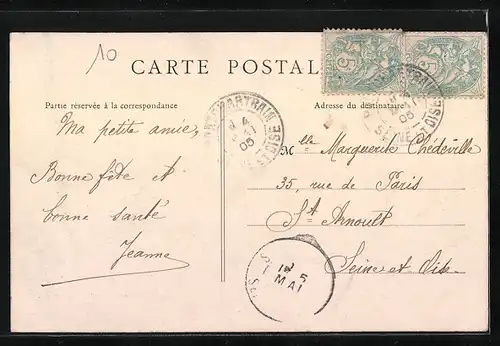 10
CARTE POSTALE
Partie réservée à la correspondance
Adresse du destinataire
Ma petite amie,
Bonne fête et
bonne santé
Jeanne
Mlle Marguerite Chédeville
35, rue de Paris
St Arnoult
Seine et Oise
05
ET OISE
5
MAI